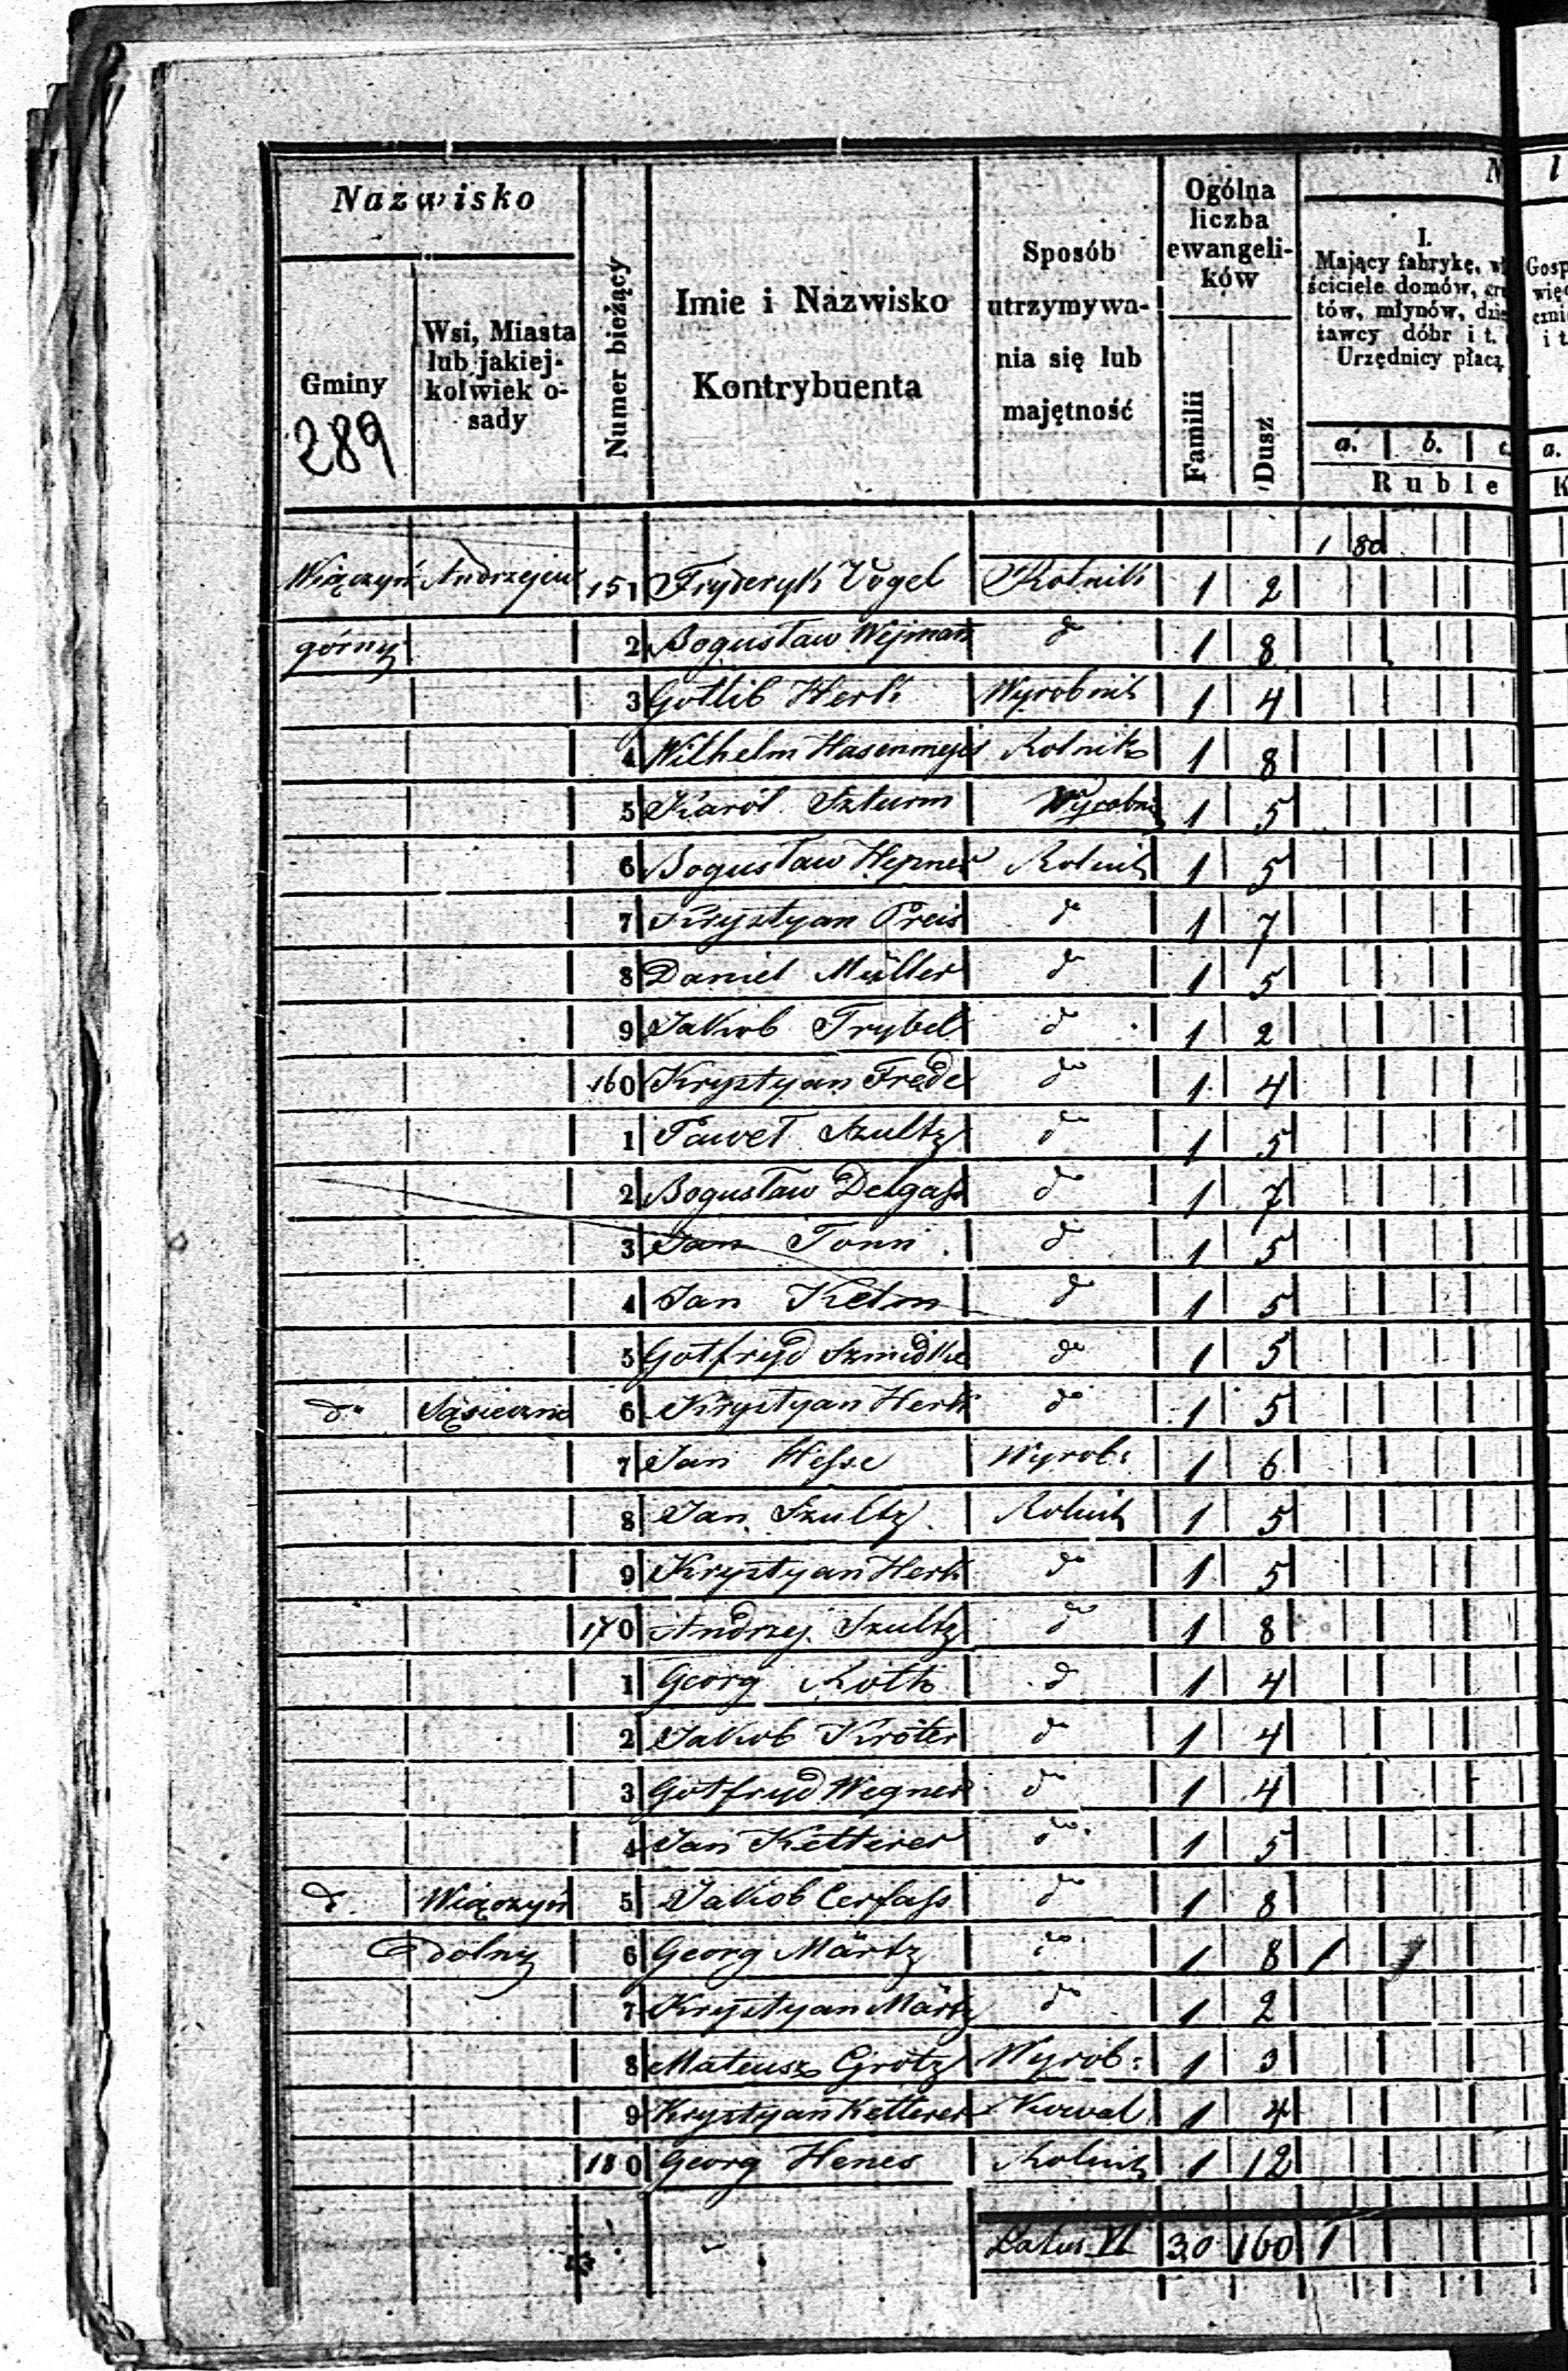 Nazwisko
Gminy
289
Wsi, Miasta
lub jakiej-
kolwiek o-
sady
Numer bieżący
Imie i Nazwisko
Kontrybuenta
Sposób
utrzymywa-
nia się lub
majętność
Ogólna
liczba
ewangeli-
ków
Familii
Dusz
I.
Mający fabrykę,
ściciele domów,
tów, młynów,
żawcy dóbr i t.
Urzędnicy płacą
a. b. c.
Ruble
1 80
Wiączyń Andrzejew 151 Fryderyk Vogel Rolnik 1 2
górny 2 Bogusław Wejman do 1 8
3 Gottlib Herk Wyrobnik 1 4
4 Wilhelm Hasenmejer Rolnik 1 8
5 Karól Szturm Wyrobnik 1 5
6 Bogusław Hepner Rolnik 1 5
7 Krystyan Preis do 1 7
8 Daniel Müller do 1 5
9 Jakób Trybel do 1 2
160 Krystyan Frede do 1 4
1 Paweł Szultz do 1 5
2 Bogusław Delgass do 1 7
3 Jan Tonn do 1 5
4 Jan Kelm do 1 5
5 Gotfryd Szmidke do 1 5
do Sąsieczno 6 Krystyan Herk do 1 5
7 Jan Hesse Wyrob: 1 6
8 Jan Szultz Rolnik 1 5
9 Krystyan Herk do 1 5
170 Andrzej Szultz do 1 8
1 Georg Roth do 1 4
2 Jakób Kröter do 1 4
3 Gotfryd Wegner do 1 4
4 Jan Ketterer do 1 5
do Wiączyń 5 Jakób Cerfass do 1 8
dolny 6 Georg Märtz do 1 8 1
7 Krystyan Märtz do 1 2
8 Mateusz Grötz Wyrob: 1 3
9 Krystyan Ketterer Kowal 1 4
180 Georg Henes Rolnik 1 12
Latus VI 30 160 1